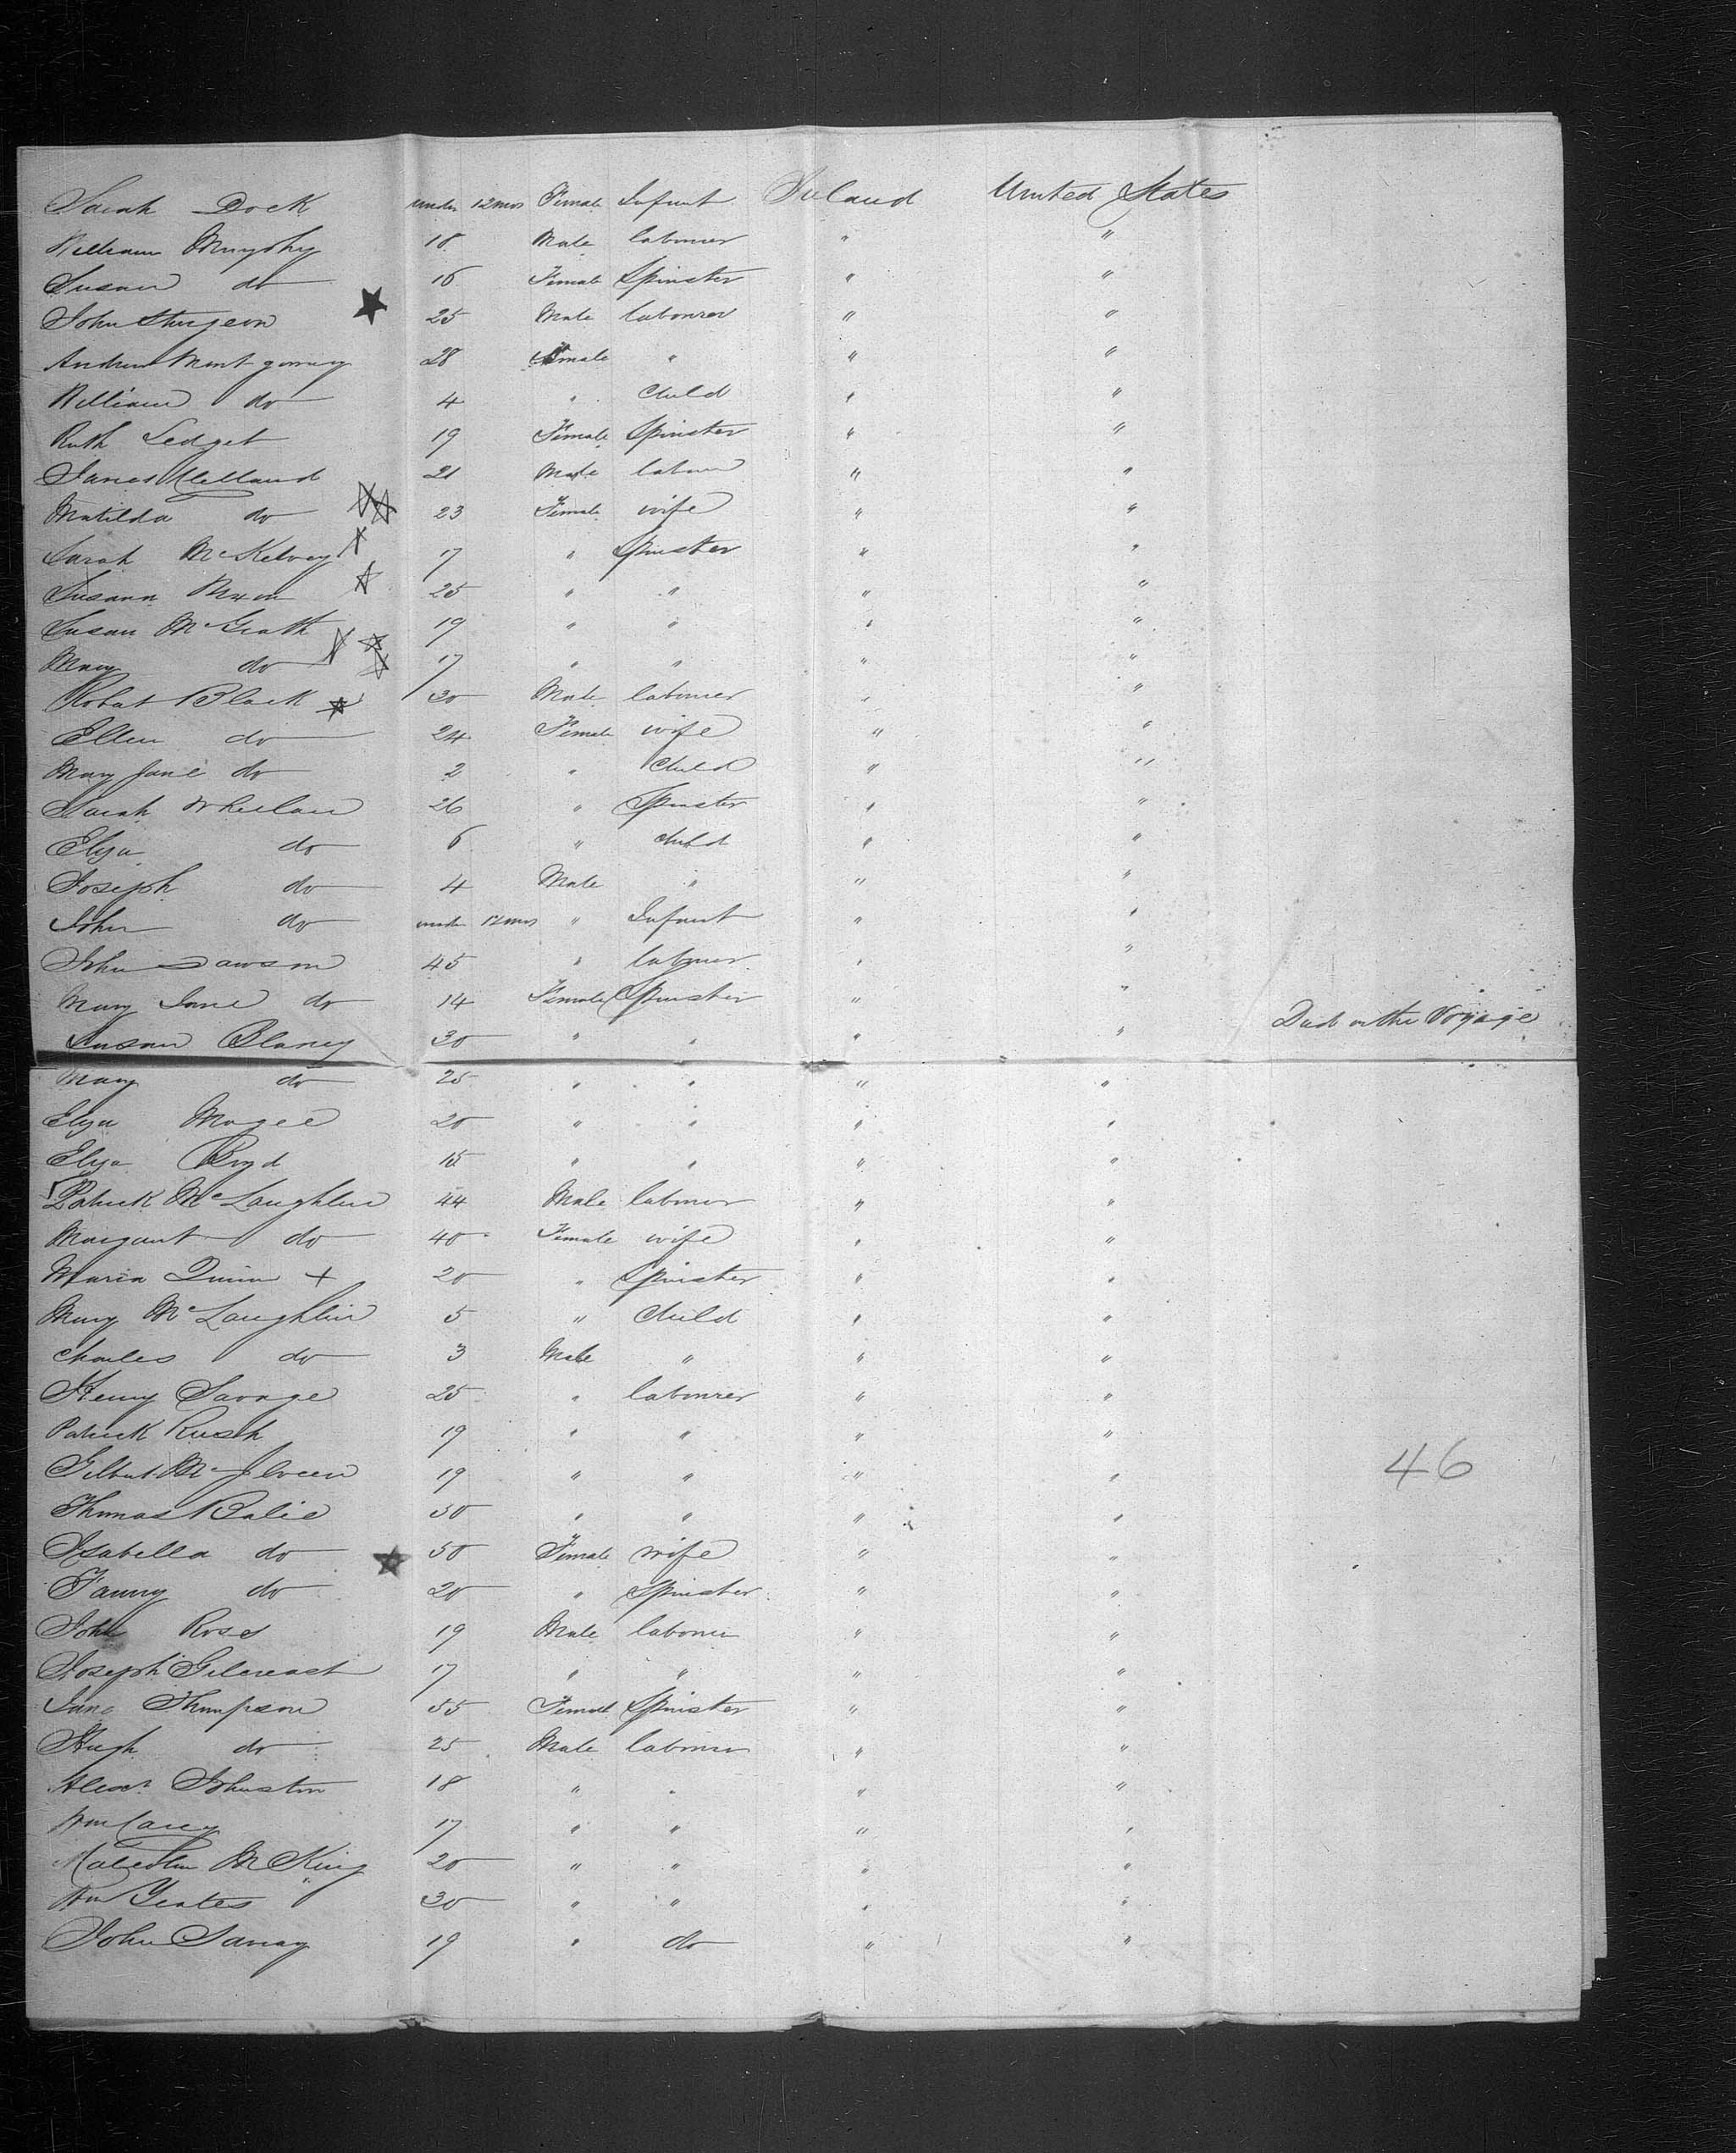 Sarah Dock under 12mos Female Infant Ireland United States
William Murphy 18 Male labourer " "
Susan do 16 Female Spinster " "
John Sturgeon 25 Male labourer " "
Andrew Montgomery 28 male " " "
William do 4 " Child " "
Ruth Ledget 19 Female Spinster " "
James Clelland 21 Male labourer " "
Matilda do 23 Female wife " "
Sarah McKelvey 17 " Spinster " "
Susann 25 " " " "
Susan McGrath 19 " " " "
Mary do 17 " " " "
Robert Black 30 Male labourer " "
Ellen do 24 Female wife " "
Mary Jane do 2 " Child " "
Sarah Wheelan 26 " Spinster " "
Eliza do 6 " child " "
Joseph do 4 Male " " "
John do under 12mos " Infant " "
John Dawson 45 " labourer " "
Mary Jane do 14 Female Spinster " "
Susan Blaney 30 " " " " Died on the Voyage
Mary do 25 " " " "
Eliza Magee 20 " " " "
Eliza Boyd 15 " " " "
Patrick McLaughlin 44 Male labourer " "
Margaret do 40 Female wife " "
Maria Quinn + 20 " Spinster " "
Mary McLaughlin 5 " Child " "
Charles do 3 Male " " "
Henry Savage 25 " labourer " "
Patrick Rush 19 " " " "
Gilbert McIlveen 19 " " " "
Thomas Balie 50 " " " "
Isabella do 50 Female wife " "
Fanny do 20 " Spinster " "
John Ross 19 Male labourer " "
Joseph Gilcreast 17 " " " "
Jane Thompson 55 Female Spinster " "
Hugh do 25 Male labourer " "
Alexr Johnston 18 " " " "
Wm Carey 17 " " " "
Malcolm McKing 20 " " " "
Wm Yeates 30 " " " "
John 19 " do " "
46